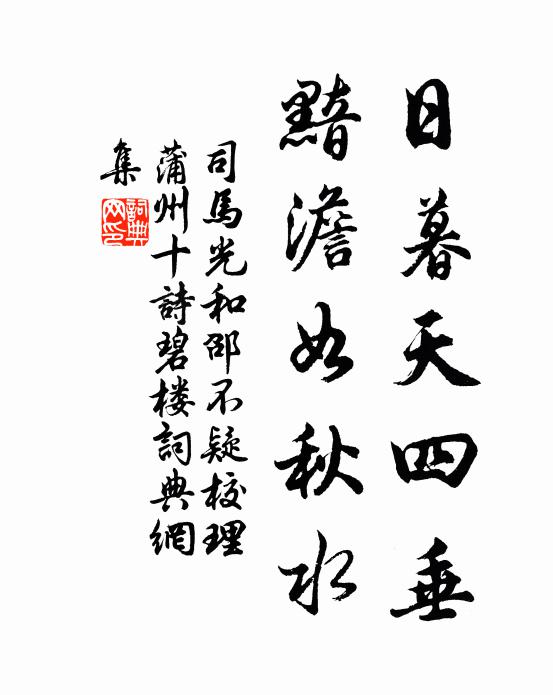 日暮天四垂
黯澹如秋水
司馬光和邵不疑校理
蒲州十詩碧楼詞典網
集
詞典網印